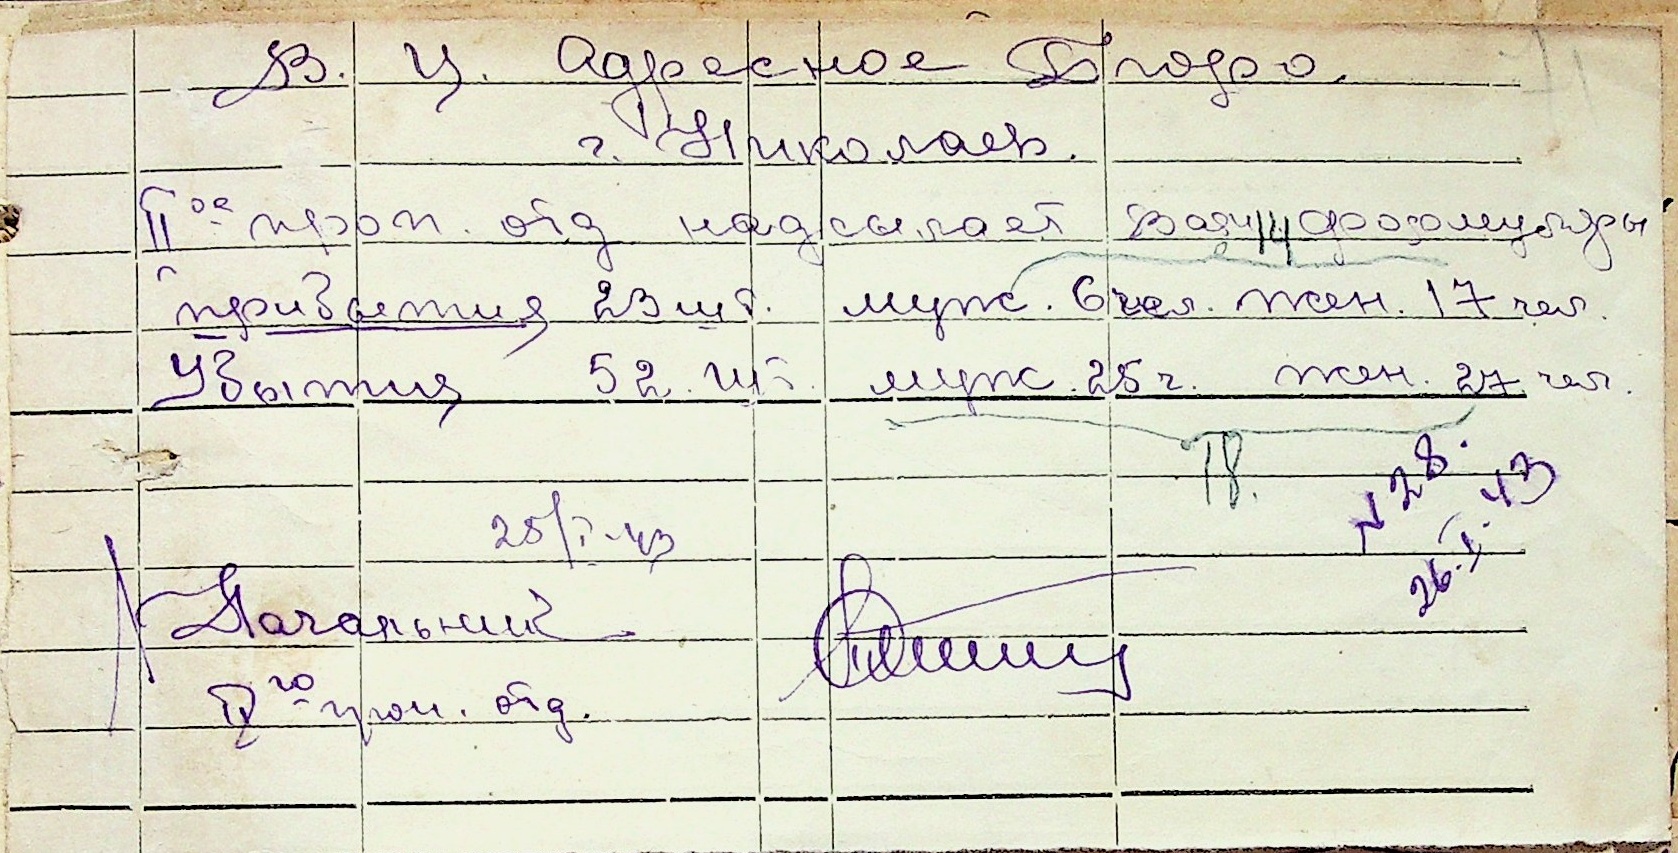 В. Ц. Адресное Бюро.
г. Николаев.
II ое проп. отд надсылает Вам формуляры
14
прибытия 23 шт. муж. 6 чел. жен. 17 чел.
Убытия 52. шт. муж. 25 ч. жен. 27 чел.
18.
N 28.
26.I.43
25/I-43
Начальник
II го проп. отд.